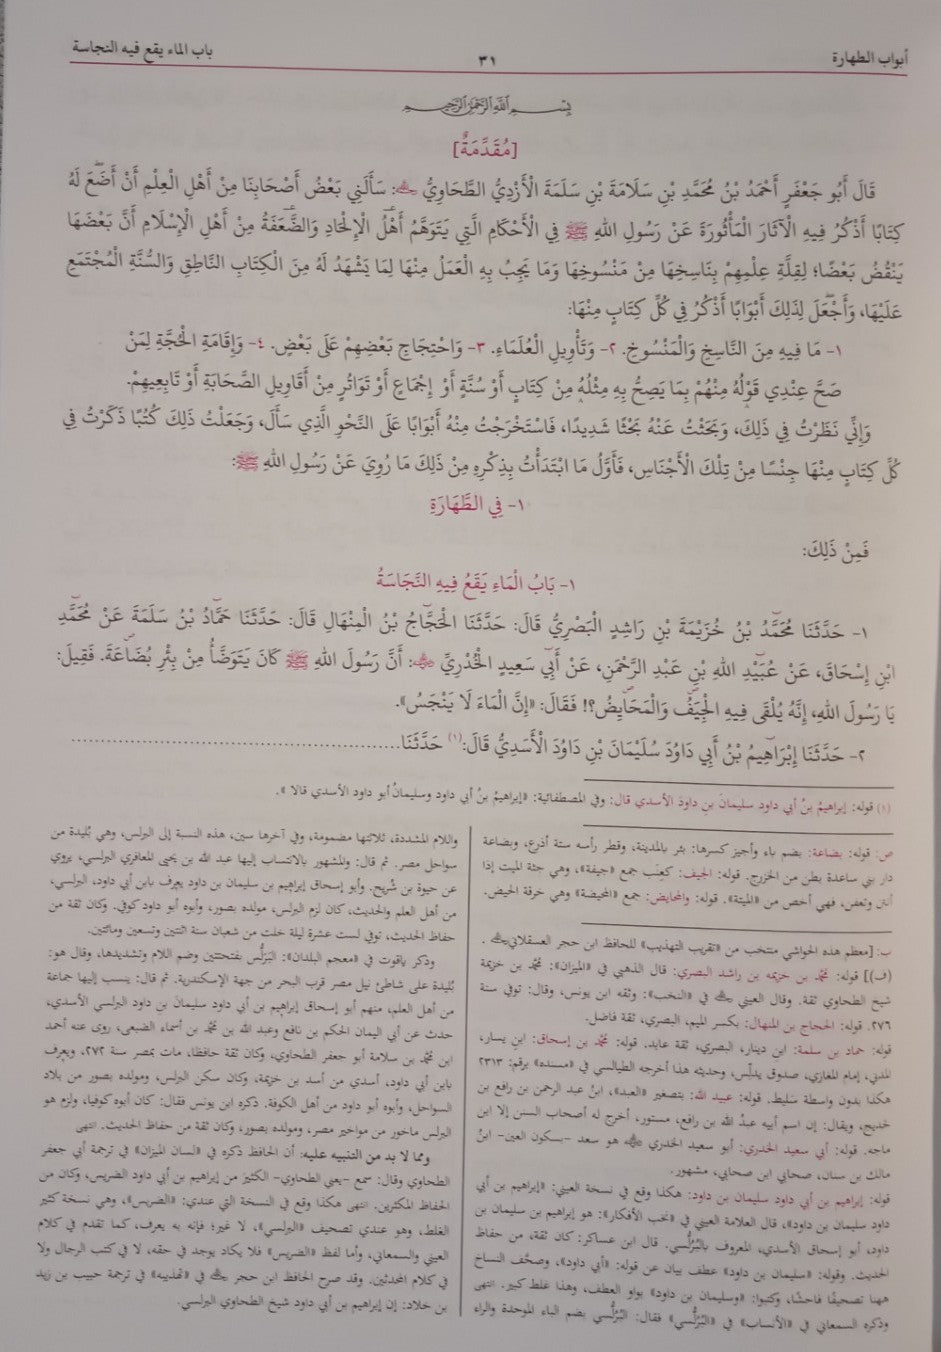 أبواب الطهارة ٣١ باب الماء يقع فيه النجاسة
بِسْمِ اللهِ الرَّحْمٰنِ الرَّحِيْمِ
[مُقَدِّمَةٌ]
قَالَ أَبُو جَعْفَرٍ أَحْمَدُ بْنُ مُحَمَّدِ بْنِ سَلَامَةَ بْنِ سَلَمَةَ الْأَزْدِيُّ الطَّحَاوِيُّ ﵀: سَأَلَنِي بَعْضُ أَصْحَابِنَا مِنْ أَهْلِ الْعِلْمِ أَنْ أَضَعَ لَهُ
كِتَابًا أَذْكُرُ فِيهِ الْآثَارَ الْمَأْثُورَةَ عَنْ رَسُولِ اللهِ ﷺ فِي الْأَحْكَامِ الَّتِي يَتَوَهَّمُ أَهْلُ الْإِلْحَادِ وَالضَّعَفَةُ مِنْ أَهْلِ الْإِسْلَامِ أَنَّ بَعْضَهَا
يَنْقُضُ بَعْضًا؛ لِقِلَّةِ عِلْمِهِمْ بِنَاسِخِهَا مِنْ مَنْسُوخِهَا وَمَا يَجِبُ بِهِ الْعَمَلُ مِنْهَا لِمَا يَشْهَدُ لَهُ مِنَ الْكِتَابِ النَّاطِقِ وَالسُّنَّةِ الْمُجْتَمَعِ
عَلَيْهَا، وَأَجْعَلَ لِذَلِكَ أَبْوَابًا أَذْكُرُ فِي كُلِّ كِتَابٍ مِنْهَا:
١- مَا فِيهِ مِنَ النَّاسِخِ وَالْمَنْسُوخِ. ٢- وَتَأْوِيلِ الْعُلَمَاءِ. ٣- وَاحْتِجَاجِ بَعْضِهِمْ عَلَى بَعْضٍ. ٤- وَإِقَامَةِ الْحُجَّةِ لِمَنْ
صَحَّ عِنْدِي قَوْلُهُ مِنْهُمْ بِمَا يَصِحُّ بِهِ مِثْلُهُ مِنْ كِتَابٍ أَوْ سُنَّةٍ أَوْ إِجْمَاعٍ أَوْ تَوَاتُرٍ مِنْ أَقَاوِيلِ الصَّحَابَةِ أَوْ تَابِعِيهِمْ.
وَإِنِّي نَظَرْتُ فِي ذَلِكَ، وَبَحَثْتُ عَنْهُ بَحْثًا شَدِيدًا، فَاسْتَخْرَجْتُ مِنْهُ أَبْوَابًا عَلَى النَّحْوِ الَّذِي سَأَلَ، وَجَعَلْتُ ذَلِكَ كُتُبًا ذَكَرْتُ فِي
كُلِّ كِتَابٍ مِنْهَا جِنْسًا مِنْ تِلْكَ الْأَجْنَاسِ، فَأَوَّلُ مَا ابْتَدَأْتُ بِذِكْرِهِ مِنْ ذَلِكَ مَا رُوِيَ عَنْ رَسُولِ اللهِ ﷺ:
١- فِي الطَّهَارَةِ
فَمِنْ ذَلِكَ:
١- بَابُ الْمَاءِ يَقَعُ فِيهِ النَّجَاسَةُ
١- حَدَّثَنَا مُحَمَّدُ بْنُ خُزَيْمَةَ بْنِ رَاشِدٍ الْبَصْرِيُّ قَالَ: حَدَّثَنَا الْحَجَّاجُ بْنُ الْمِنْهَالِ قَالَ: حَدَّثَنَا حَمَّادُ بْنُ سَلَمَةَ عَنْ مُحَمَّدِ
ابْنِ إِسْحَاقَ، عَنْ عُبَيْدِ اللهِ بْنِ عَبْدِ الرَّحْمَنِ، عَنْ أَبِي سَعِيدٍ الْخُدْرِيِّ ﵁: أَنَّ رَسُولَ اللهِ ﷺ كَانَ يَتَوَضَّأُ مِنْ بِئْرِ بُضَاعَةَ. فَقِيلَ:
يَا رَسُولَ اللهِ، إِنَّهُ يُلْقَى فِيهِ الْجِيَفُ وَالْمَحَايِضُ؟! فَقَالَ: «إِنَّ الْمَاءَ لَا يَنْجَسُ».
٢- حَدَّثَنَا إِبْرَاهِيمُ بْنُ أَبِي دَاوُدَ سُلَيْمَانَ بْنِ دَاوُدَ الْأَسَدِيُّ قَالَ:(١) حَدَّثَنَا......................................
(١) قوله: إبراهيمُ بنُ أبي داود سليمانَ بنِ داودَ الأسدي قال: وفي المصطفائية: «إبراهيمُ بنُ أبي داود وسليمانُ أبو داود الأسدي قالا».
ص: قوله: بضاعة: بضم باء وأجيز كسرها: بئر بالمدينة، وقطر رأسه ستة أذرع، وبضاعة
دار بني ساعدة بطن من الخزرج. قوله: الجيف: كعِنَب جمع «جيفة»، وهي جثة الميت إذا
أنتن وتعفن، فهي أخص من «الميتة». قوله: والمحايض: جمع «المحيضة» وهي خرقة الحيض.
ب: [معظم هذه الحواشي منتخب من «تقريب التهذيب» للحافظ ابن حجر العسقلاني ﵀.
(ف)] قوله: محمّد بن خزيمه بن راشد البصري: قال الذهبي في «الميزان»: محمّد بن خزيمة
شيخ الطحاوي ثقة. وقال العيني ﵀ في «النخب»: وثقه ابن يونس، وقال: توفي سنة
٢٧٦. قوله: الحجاج بن المنهال: بكسر الميم، البصري، ثقة فاضل.
قوله: حماد بن سلمة: ابن دينار، البصري، ثقة عابد. قوله: محمّد بن إسحاق: ابنِ يسار،
المدني، إمام المغازي، صدوق يدلّس، وحديثه هذا أخرجه الطيالسي في «مسنده» برقم: ٢٣١٣
هكذا بدون واسطة سَليط. قوله: عبيد الله: بتصغير «العبد»، ابنُ عبد الرحمن بن رافع بن
خديج، ويقال: إن اسم أبيه عبدُ الله بن رافع، مستور، أخرج له أصحاب السنن إلا ابن
ماجه. قوله: أبي سعيد الخدري: أبو سعيد الخدري ﵁ هو سعد -بسكون العين- ابنُ
مالك بن سنان، صحابي ابن صحابي، مشهور.
قوله: إبراهيم بن أبي داود سليمان بن داود: هكذا وقع في نسخة العيني: «إبراهيم بن أبي
داود سليمان بن داود»، قال العلامة العيني في «نخب الأفكار»: هو إبراهيم بن سليمان بن
داود، أبو إسحاق الأسدي، المعروف بالبُرُلُّسي. قال ابن عساكر: كان ثقة، من حفاظ
الحديث. وقوله: «سليمان بن داود» عطف بيان عن قوله: «أبي داود»، وصحَّف النساخ
ههنا تصحيفًا فاحشًا، وكتبوا: «وسليمان بن داود» بواو العطف، وهذا غلط كبير. انتهى
وذكره السمعاني في «الأنساب» في «البُرُلُّسي» فقال: البُرُلُّسي بضم الباء الموحدة والراء
واللام المشددة، ثلاثتها مضمومة، وفي آخرها سين، هذه النسبة إلى البرلس، وهي بُليدة من
سواحل مصر. ثم قال: والمشهور بالانتساب إليها عبد الله بن يحيى المعافري البرلسي، يروي
عن حيوة بن شُريح. وأبو إسحاق إبراهيم بن سليمان بن داود يعرف بابن أبي داود، البرلسي،
من أهل العلم والحديث، كان لزم البرلس، مولده بصور، وأبوه أبو داود كوفي. وكان ثقة من
حفاظ الحديث، توفي لست عشرة ليلة خلت من شعبان سنة اثنتين وتسعين ومائتين.
وذكر ياقوت في «معجم البلدان»: البَرَلُّس بفتحتين وضم اللام وتشديدها، وقال هو:
بُليدة على شاطئ نيل مصر قرب البحر من جهة الإسكندرية. ثم قال: ينسب إليها جماعة
من أهل العلم، منهم أبو إسحاق إبراهيم بن أبي داود سليمانَ بن داود البرلسي الأسدي،
حدث عن أبي اليمان الحكم بن نافع وعبد الله بن محمّد بن أسماء الضبعي، روى عنه أحمد
ابن محمّد بن سلامة أبو جعفر الطحاوي، وكان ثقة حافظا، مات بمصر سنة ٢٧٢، ويعرف
بابن أبي داود، أسدي من أسد بن خزيمة، وكان سكن البرلس، ومولده بصور من بلاد
السواحل، وأبوه أبو داود من أهل الكوفة. ذكره ابن يونس فقال: كان أبوه كوفيا، ولزم هو
البرلس ماخور من مواخير مصر، ومولده بصور، وكان ثقة من حفاظ الحديث. انتهى
ومما لا بد من التنبيه عليه: أن الحافظ ذكره في «لسان الميزان» في ترجمة أبي جعفر
الطحاوي وقال: سمع -يعني الطحاوي- الكثيرَ من إبراهيم بن أبي داود الضريس، وكان من
الحفاظ المكثرين. انتهى هكذا وقع في النسخة التي عندي: «الضريس»، وهي نسخة كثير
الغلط، وهو عندي تصحيف «البرلسي»، لا غير؛ فإنه به يعرف، كما تقدم في كلام
العيني والسمعاني، وأما لفظ «الضريس» فلا يكاد يوجد في حقه، لا في كتب الرجال ولا
في كلام المحدثين. وقد صرح الحافظ ابن حجر ﵀ في «تهذيبه» في ترجمة حبيب بن زيد
بن خلاد: إن إبراهيم بن أبي داود شيخ الطحاوي البرلسي.